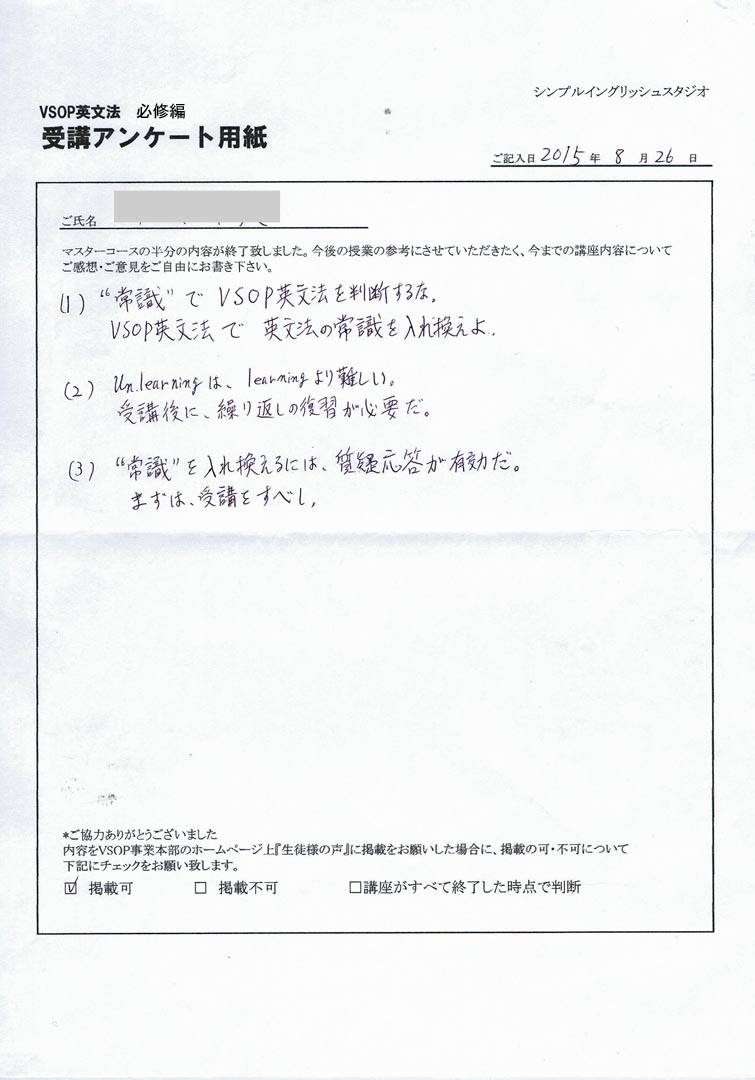 シンプルイングリッシュスタジオ
VSOP英文法 必修編
受講アンケート用紙
ご記入日 2015 年 8 月 26 日
ご氏名
マスターコースの半分の内容が終了致しました。今後の授業の参考にさせていただきたく、今までの講座内容について
ご感想・ご意見をご自由にお書き下さい。
(1) "常識" で VSOP英文法を判断するな。
VSOP英文法で 英文法の常識を入れ換えよ.
(2) Un.learningは、learningより難しい。
受講後に、繰り返しの復習が必要だ。
(3) "常識" を入れ換えるには、質疑応答が有効だ。
まずは、受講をすべし。
*ご協力ありがとうございました
内容をVSOP事業本部のホームページ上『生徒様の声』に掲載をお願いした場合に、掲載の可・不可について
下記にチェックをお願い致します。
☑ 掲載可 □ 掲載不可 □講座がすべて終了した時点で判断